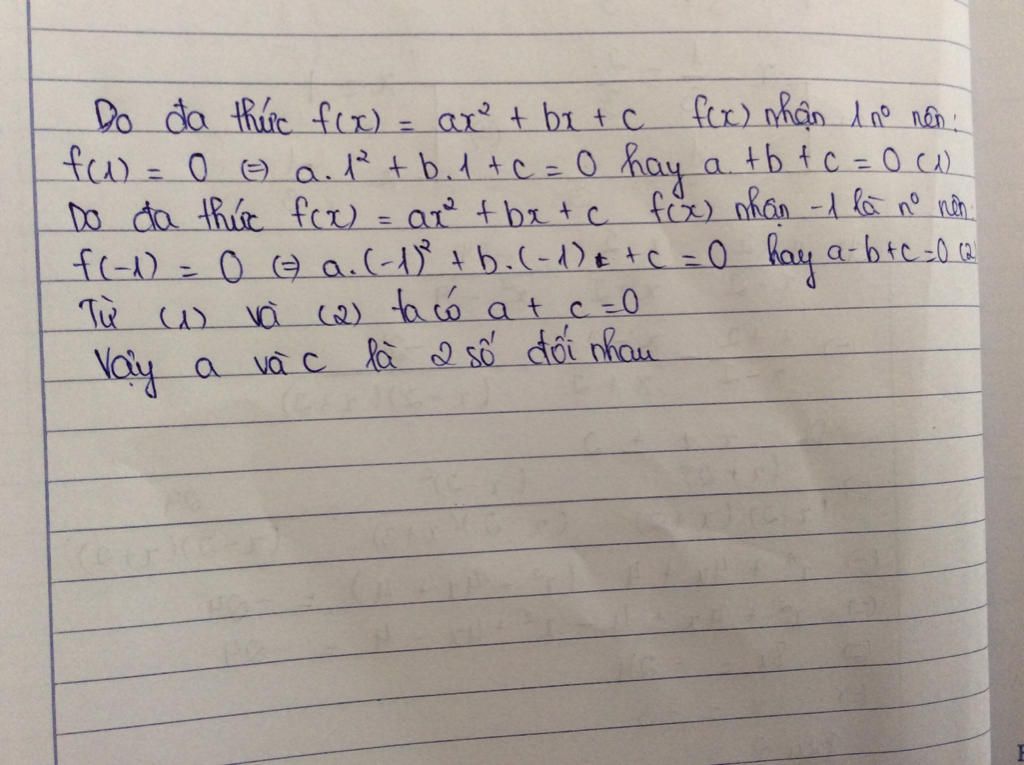 Do đa thức f(x) = ax² + bx + c f(x) nhận 1 n⁰ nên:
f(1) = 0 (=) a. 1² + b. 1 + c = 0 hay a + b + c = 0 (1)
Do đa thức f(x) = ax² + bx + c f(x) nhận -1 là n⁰ nên:
f(-1) = 0 (=) a. (-1)² + b. (-1) + c = 0 hay a - b + c = 0 (2
Từ (1) và (2) ta có a + c = 0
Vậy a và c là 2 số đối nhau